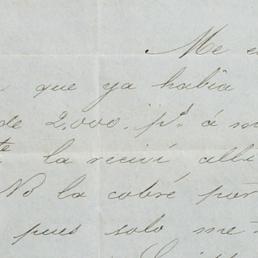 Me
que ya habia
de 2,000. p.s á
la reciví, alli
No la cobré por
pues solo me